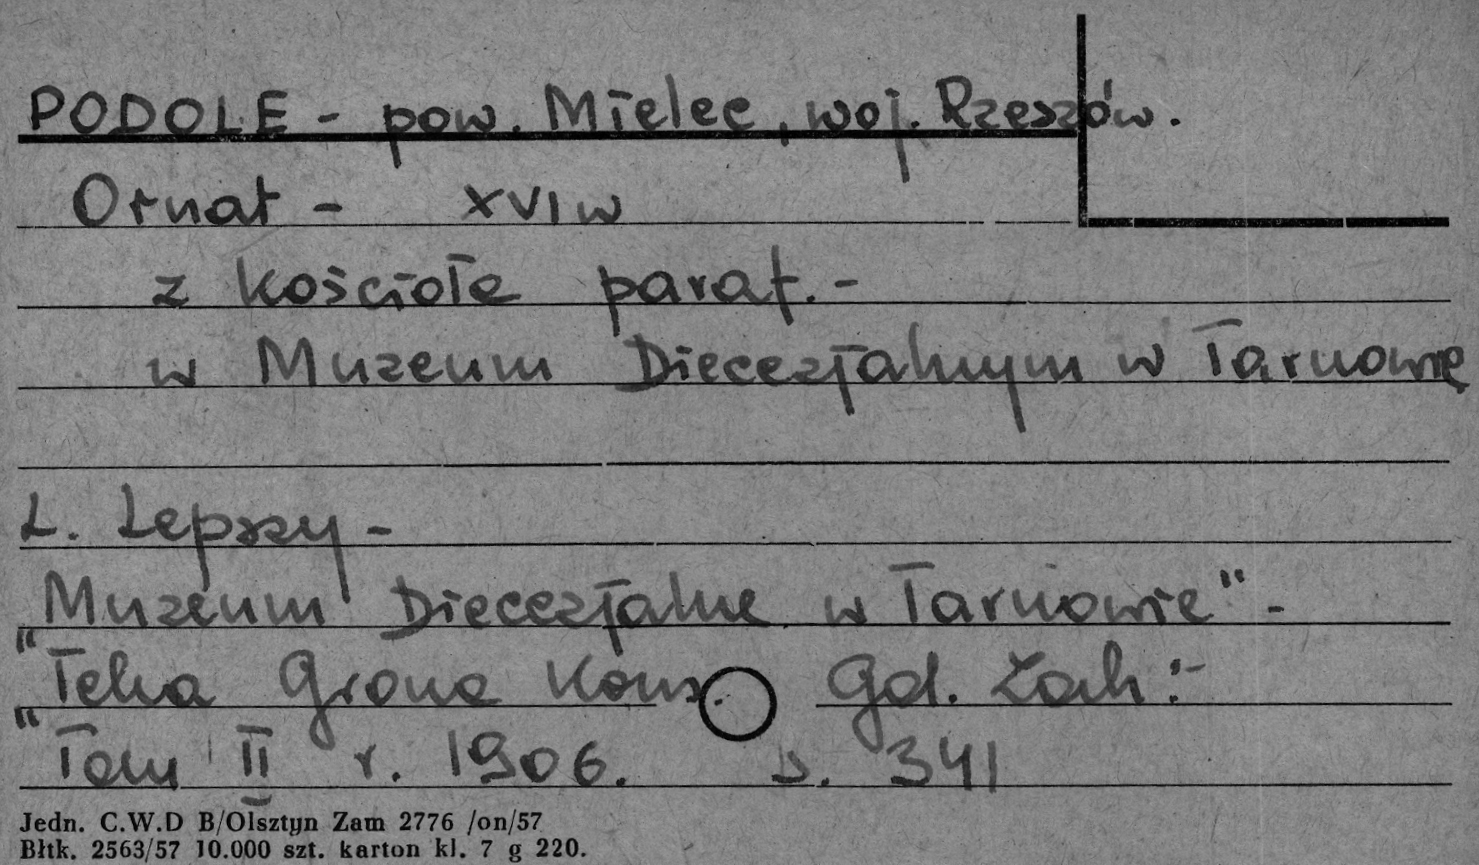 PODOLE - pow. Mielec, woj. Rzeszów.
Ornat - XVI w
z kościoła paraf. -
w Muzeum Diecezjalnym w Tarnowie
L. Lepszy -
"Muzeum Diecezjalne w Tarnowie" -
"Teka Grona Kons. Gal. Zach." -
Tom II r. 1906. s. 341
Jedn. C.W.D B/Olsztyn Zam 2776 /on/57
Błtk. 2563/57 10.000 szt. karton kl. 7 g 220.